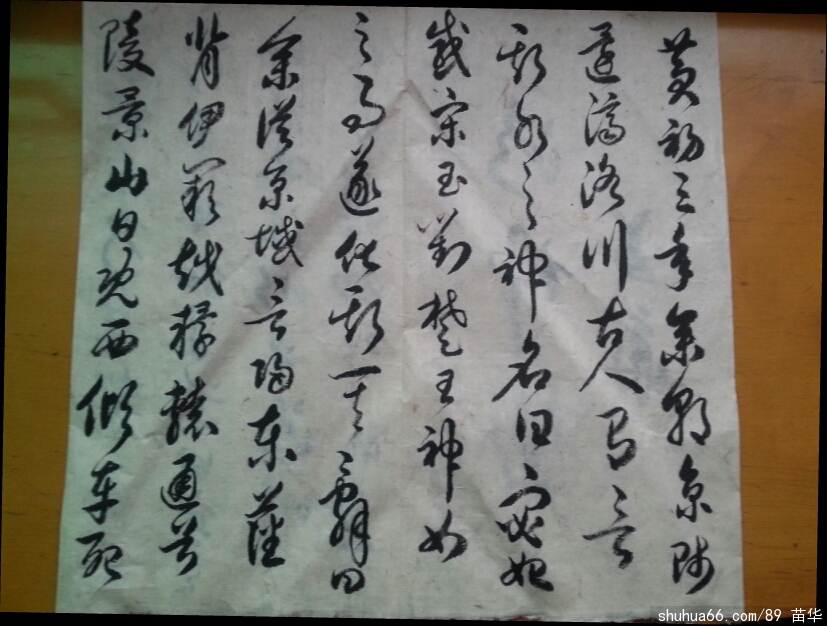 黄初三年余朝京師
還濟洛川古人有言
斯水之神名曰宓妃
感宋玉對楚王神女
之事遂作斯其辭曰
余從京域言歸東藩
背伊闕越轘轅通谷
陵景山日既西傾車殆
shuhua66.com/89 苗华